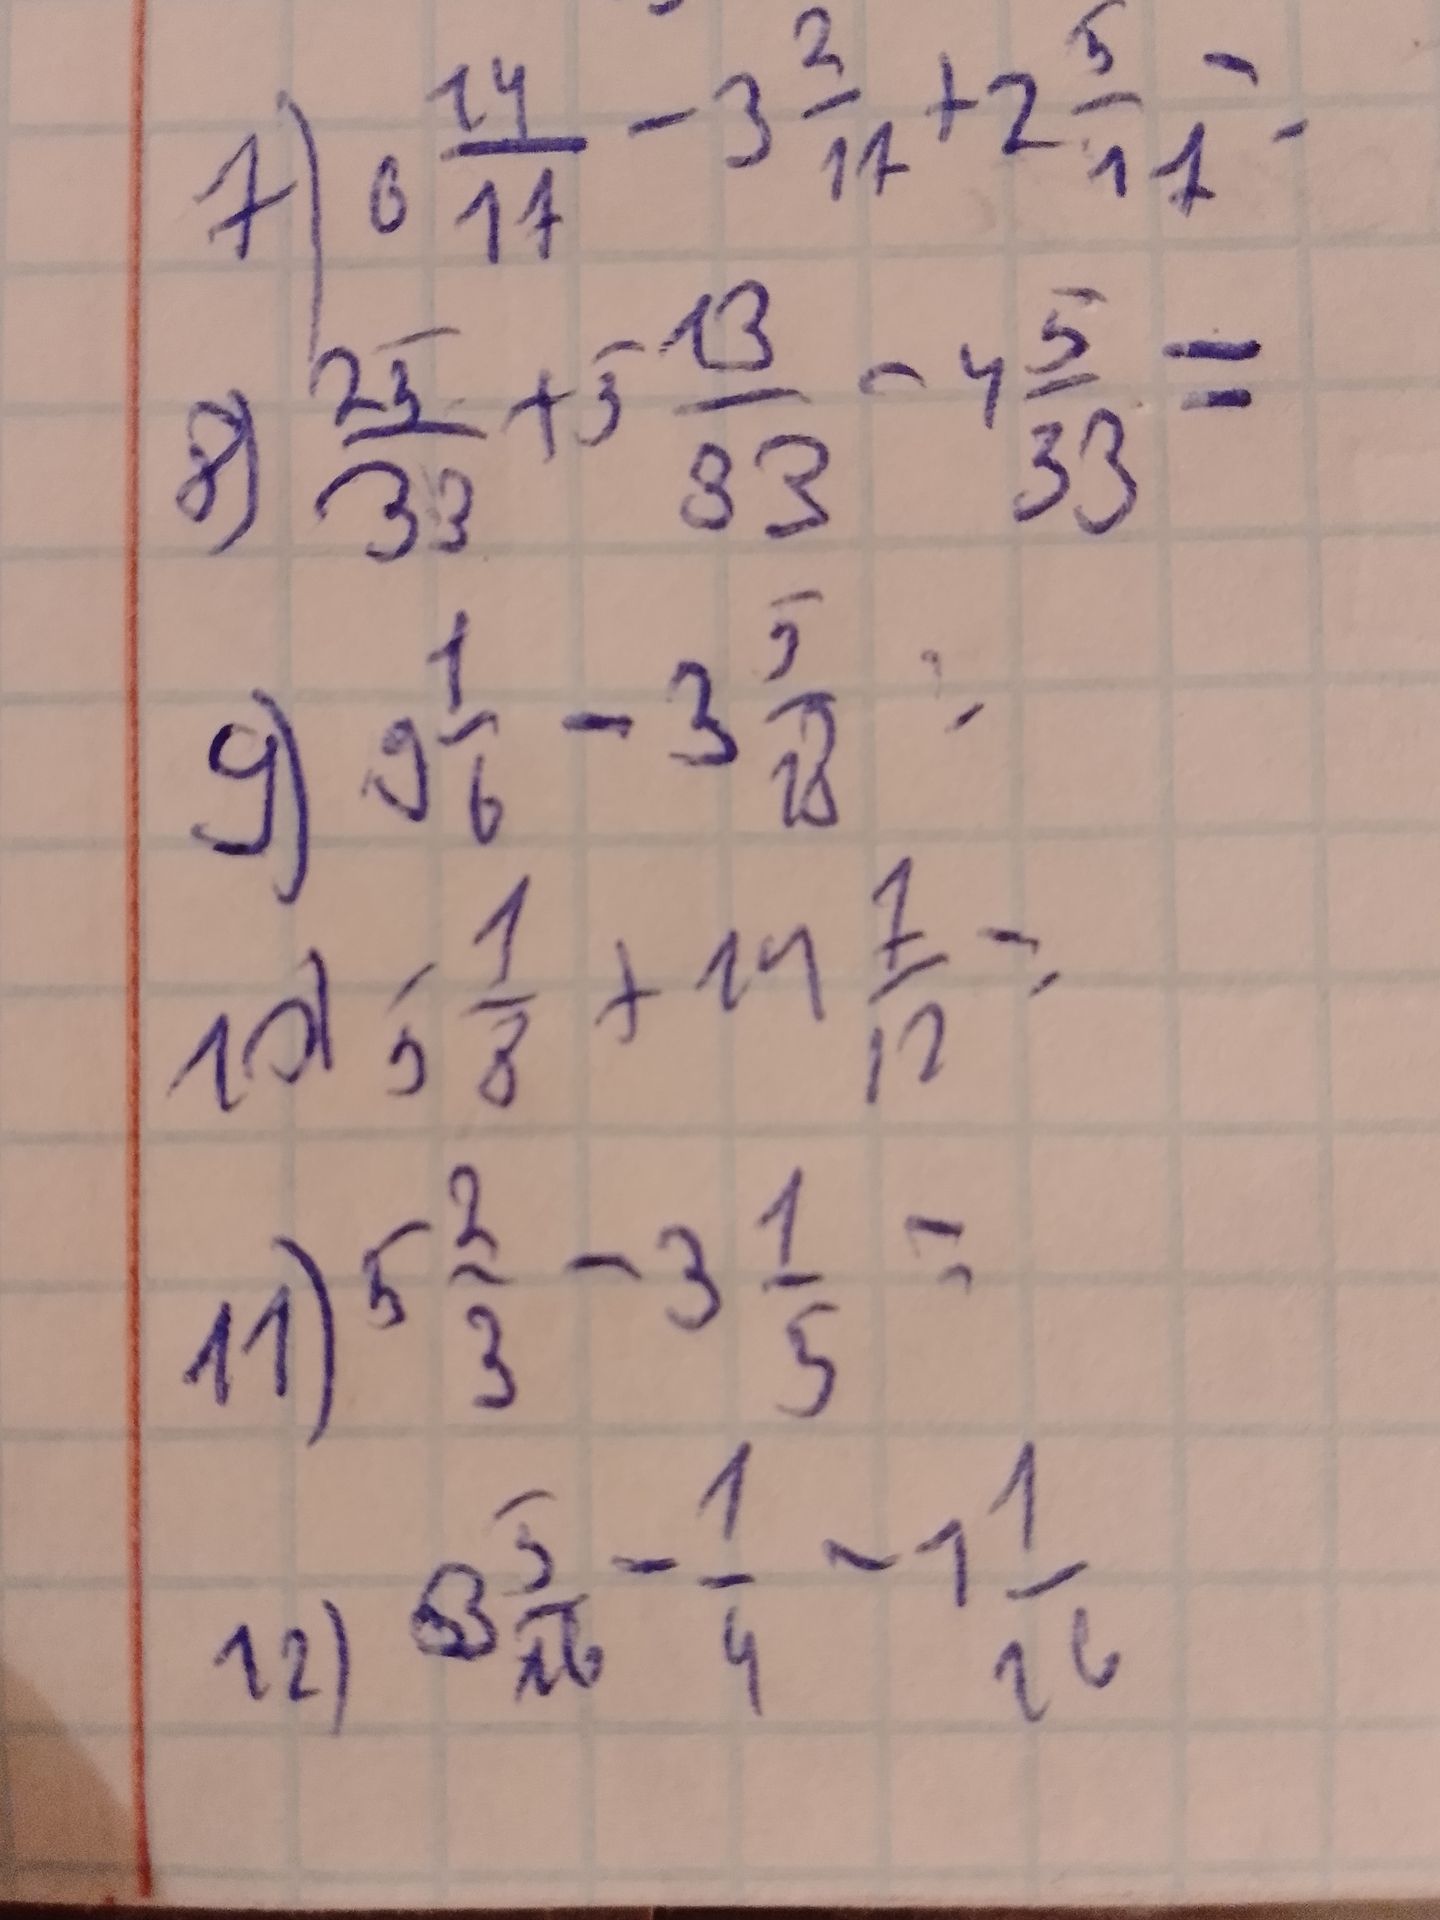 7) 6 14/17 - 3 2/17 + 2 5/17 =
8) 25/33 + 5 13/33 - 4 5/33 =
9) 9 1/6 - 3 5/18 =
10) 5 1/8 + 14 7/12 =
11) 5 2/3 - 3 1/5 =
12) 3 5/16 - 1/4 - 1 1/16